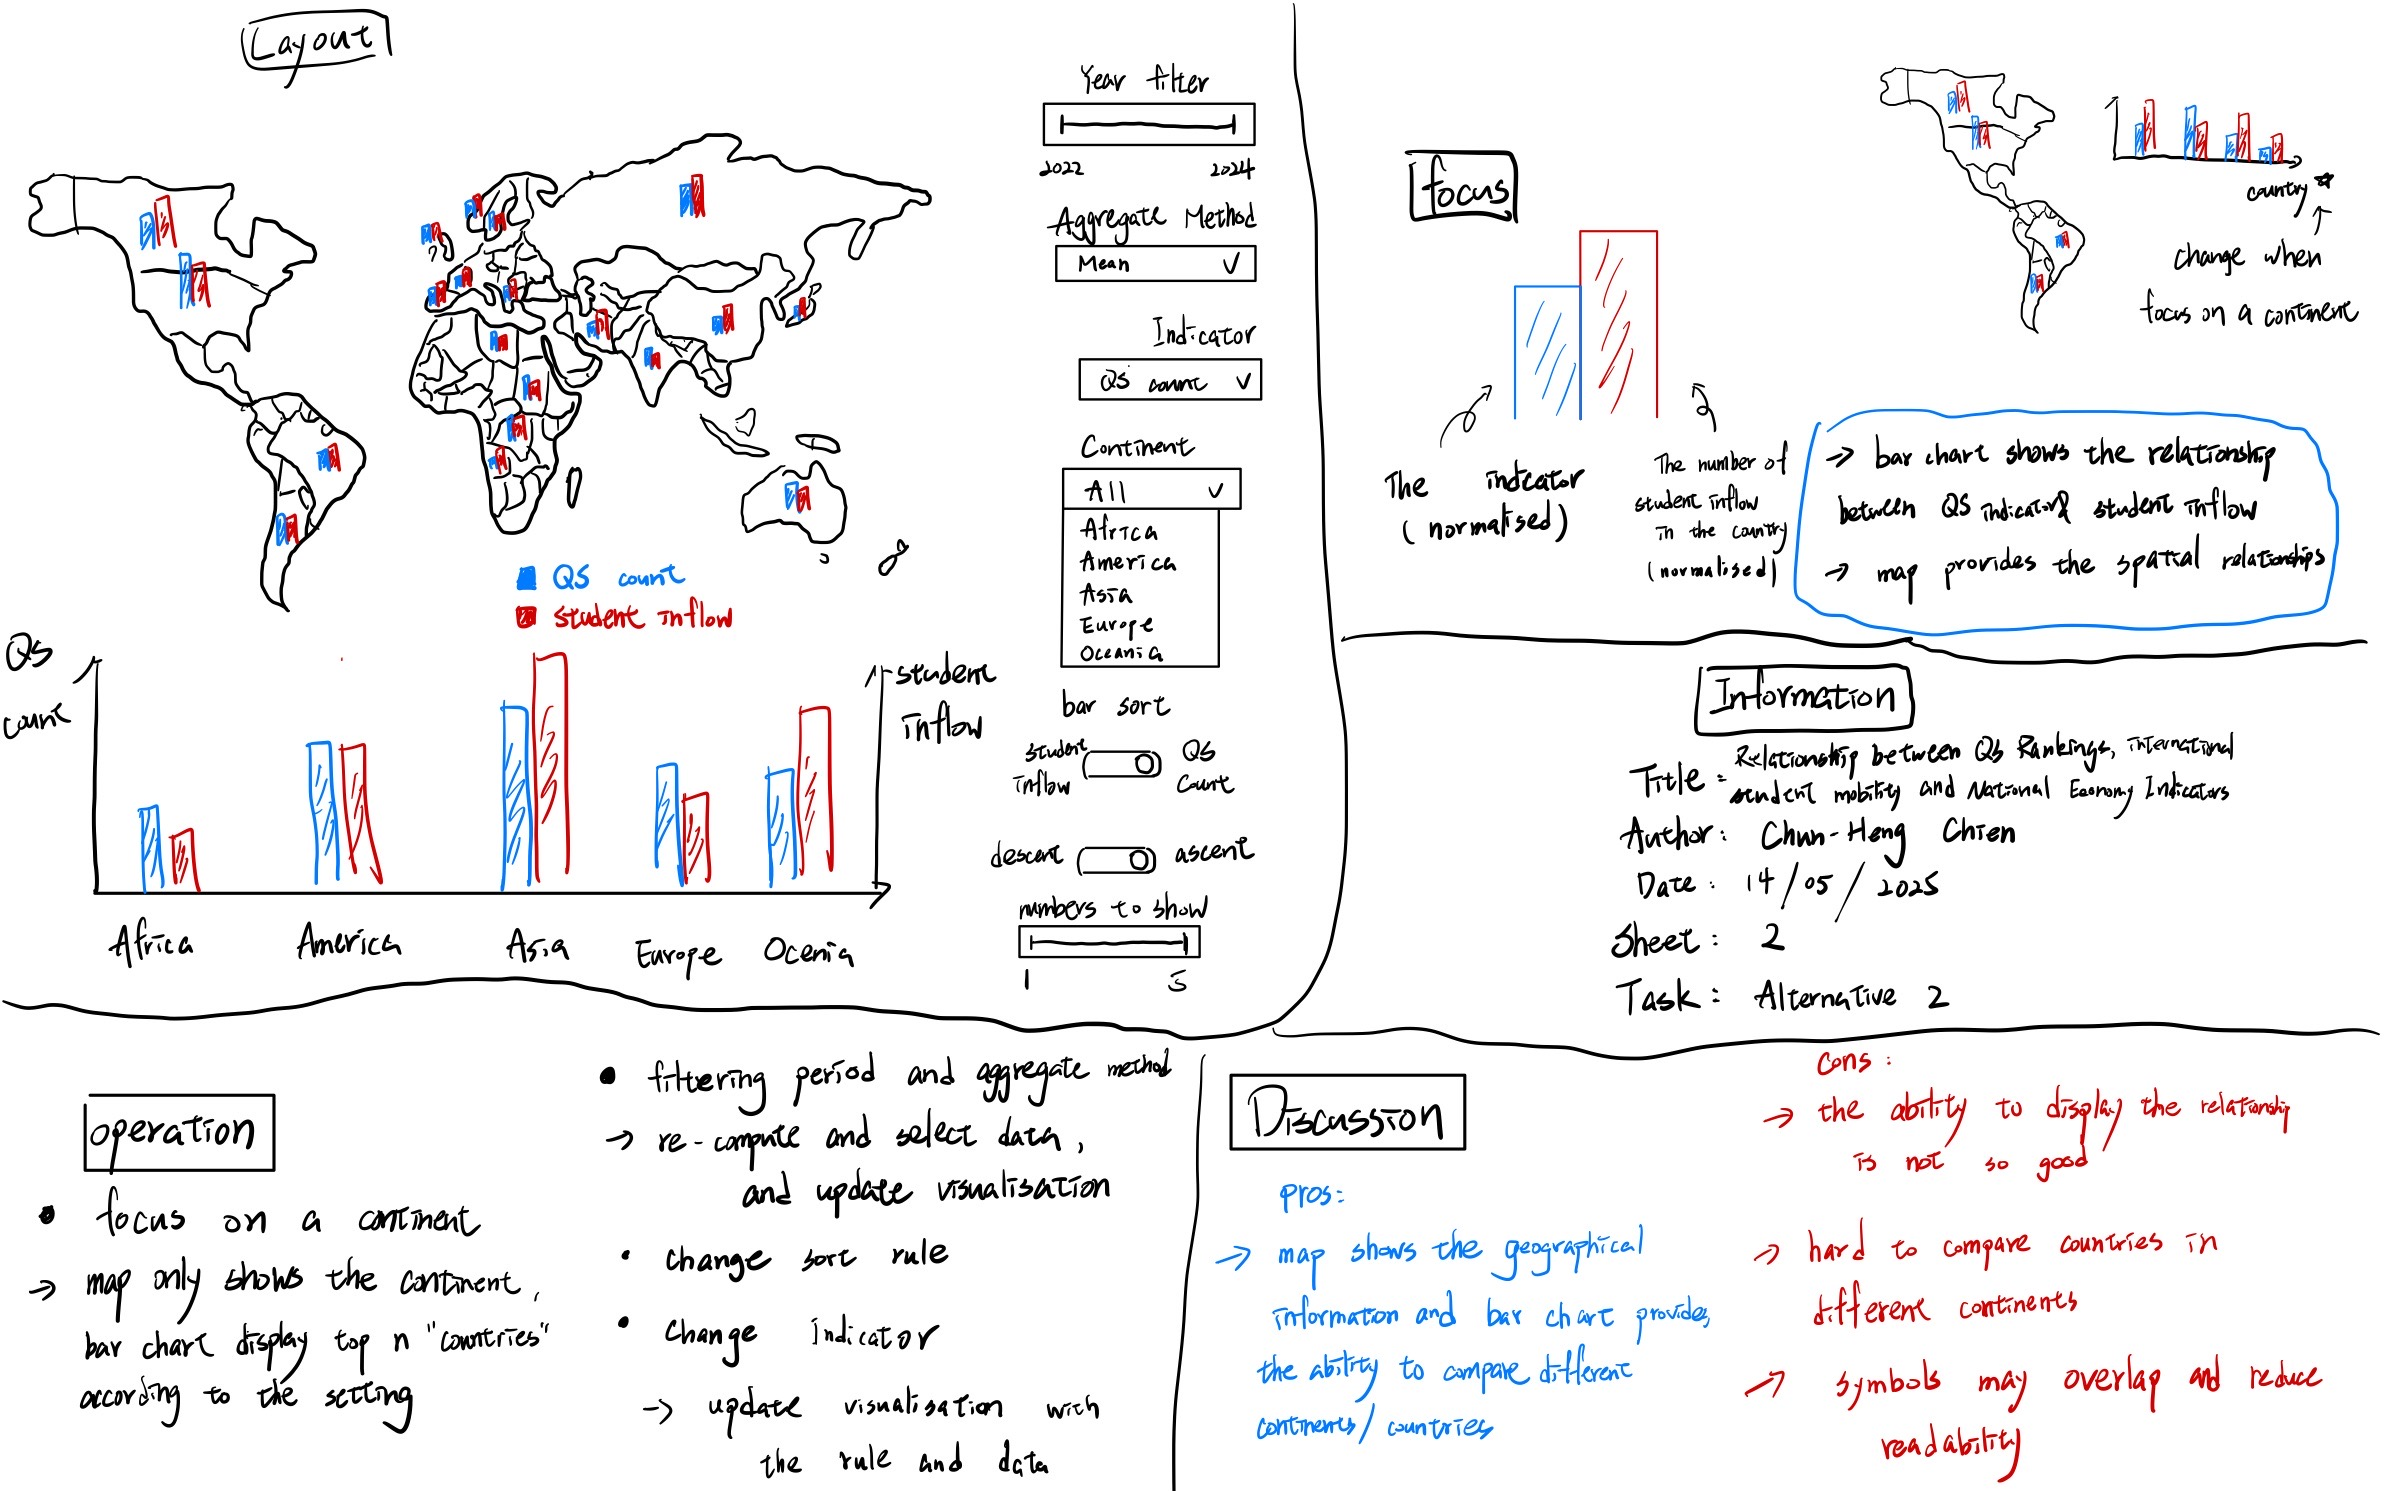 Layout
Year filter
2022 2024
Aggregate Method
Mean
Indicator
QS count
Continent
All
Africa
America
Asia
Europe
Oceania
bar sort
student inflow
QS count
descent ascent
numbers to show
1 5
QS count
student inflow
QS
count
student
inflow
Africa America Asia Europe Ocenia
focus
The indicator
(normalised)
The number of
student inflow
in the country
(normalised)
country
change when
focus on a continent
→ bar chart shows the relationship
between QS indicator & student inflow
→ map provides the spatial relationships
Information
Title: Relationship between QS Rankings, international
student mobility and National Economy Indicators
Author: Chun-Heng Chien
Date: 14/05/2025
Sheet: 2
Task: Alternative 2
operation
• focus on a continent
→ map only shows the continent,
bar chart display top n "countries"
according to the setting
• filtering period and aggregate method
→ re-compute and select data,
and update visualisation
• change sort rule
• change indicator
→ update visualisation with
the rule and data
Discussion
pros:
→ map shows the geographical
information and bar chart provides
the ability to compare different
continents/countries
cons:
→ the ability to display the relationship
is not so good
→ hard to compare countries in
different continents
→ symbols may overlap and reduce
readability